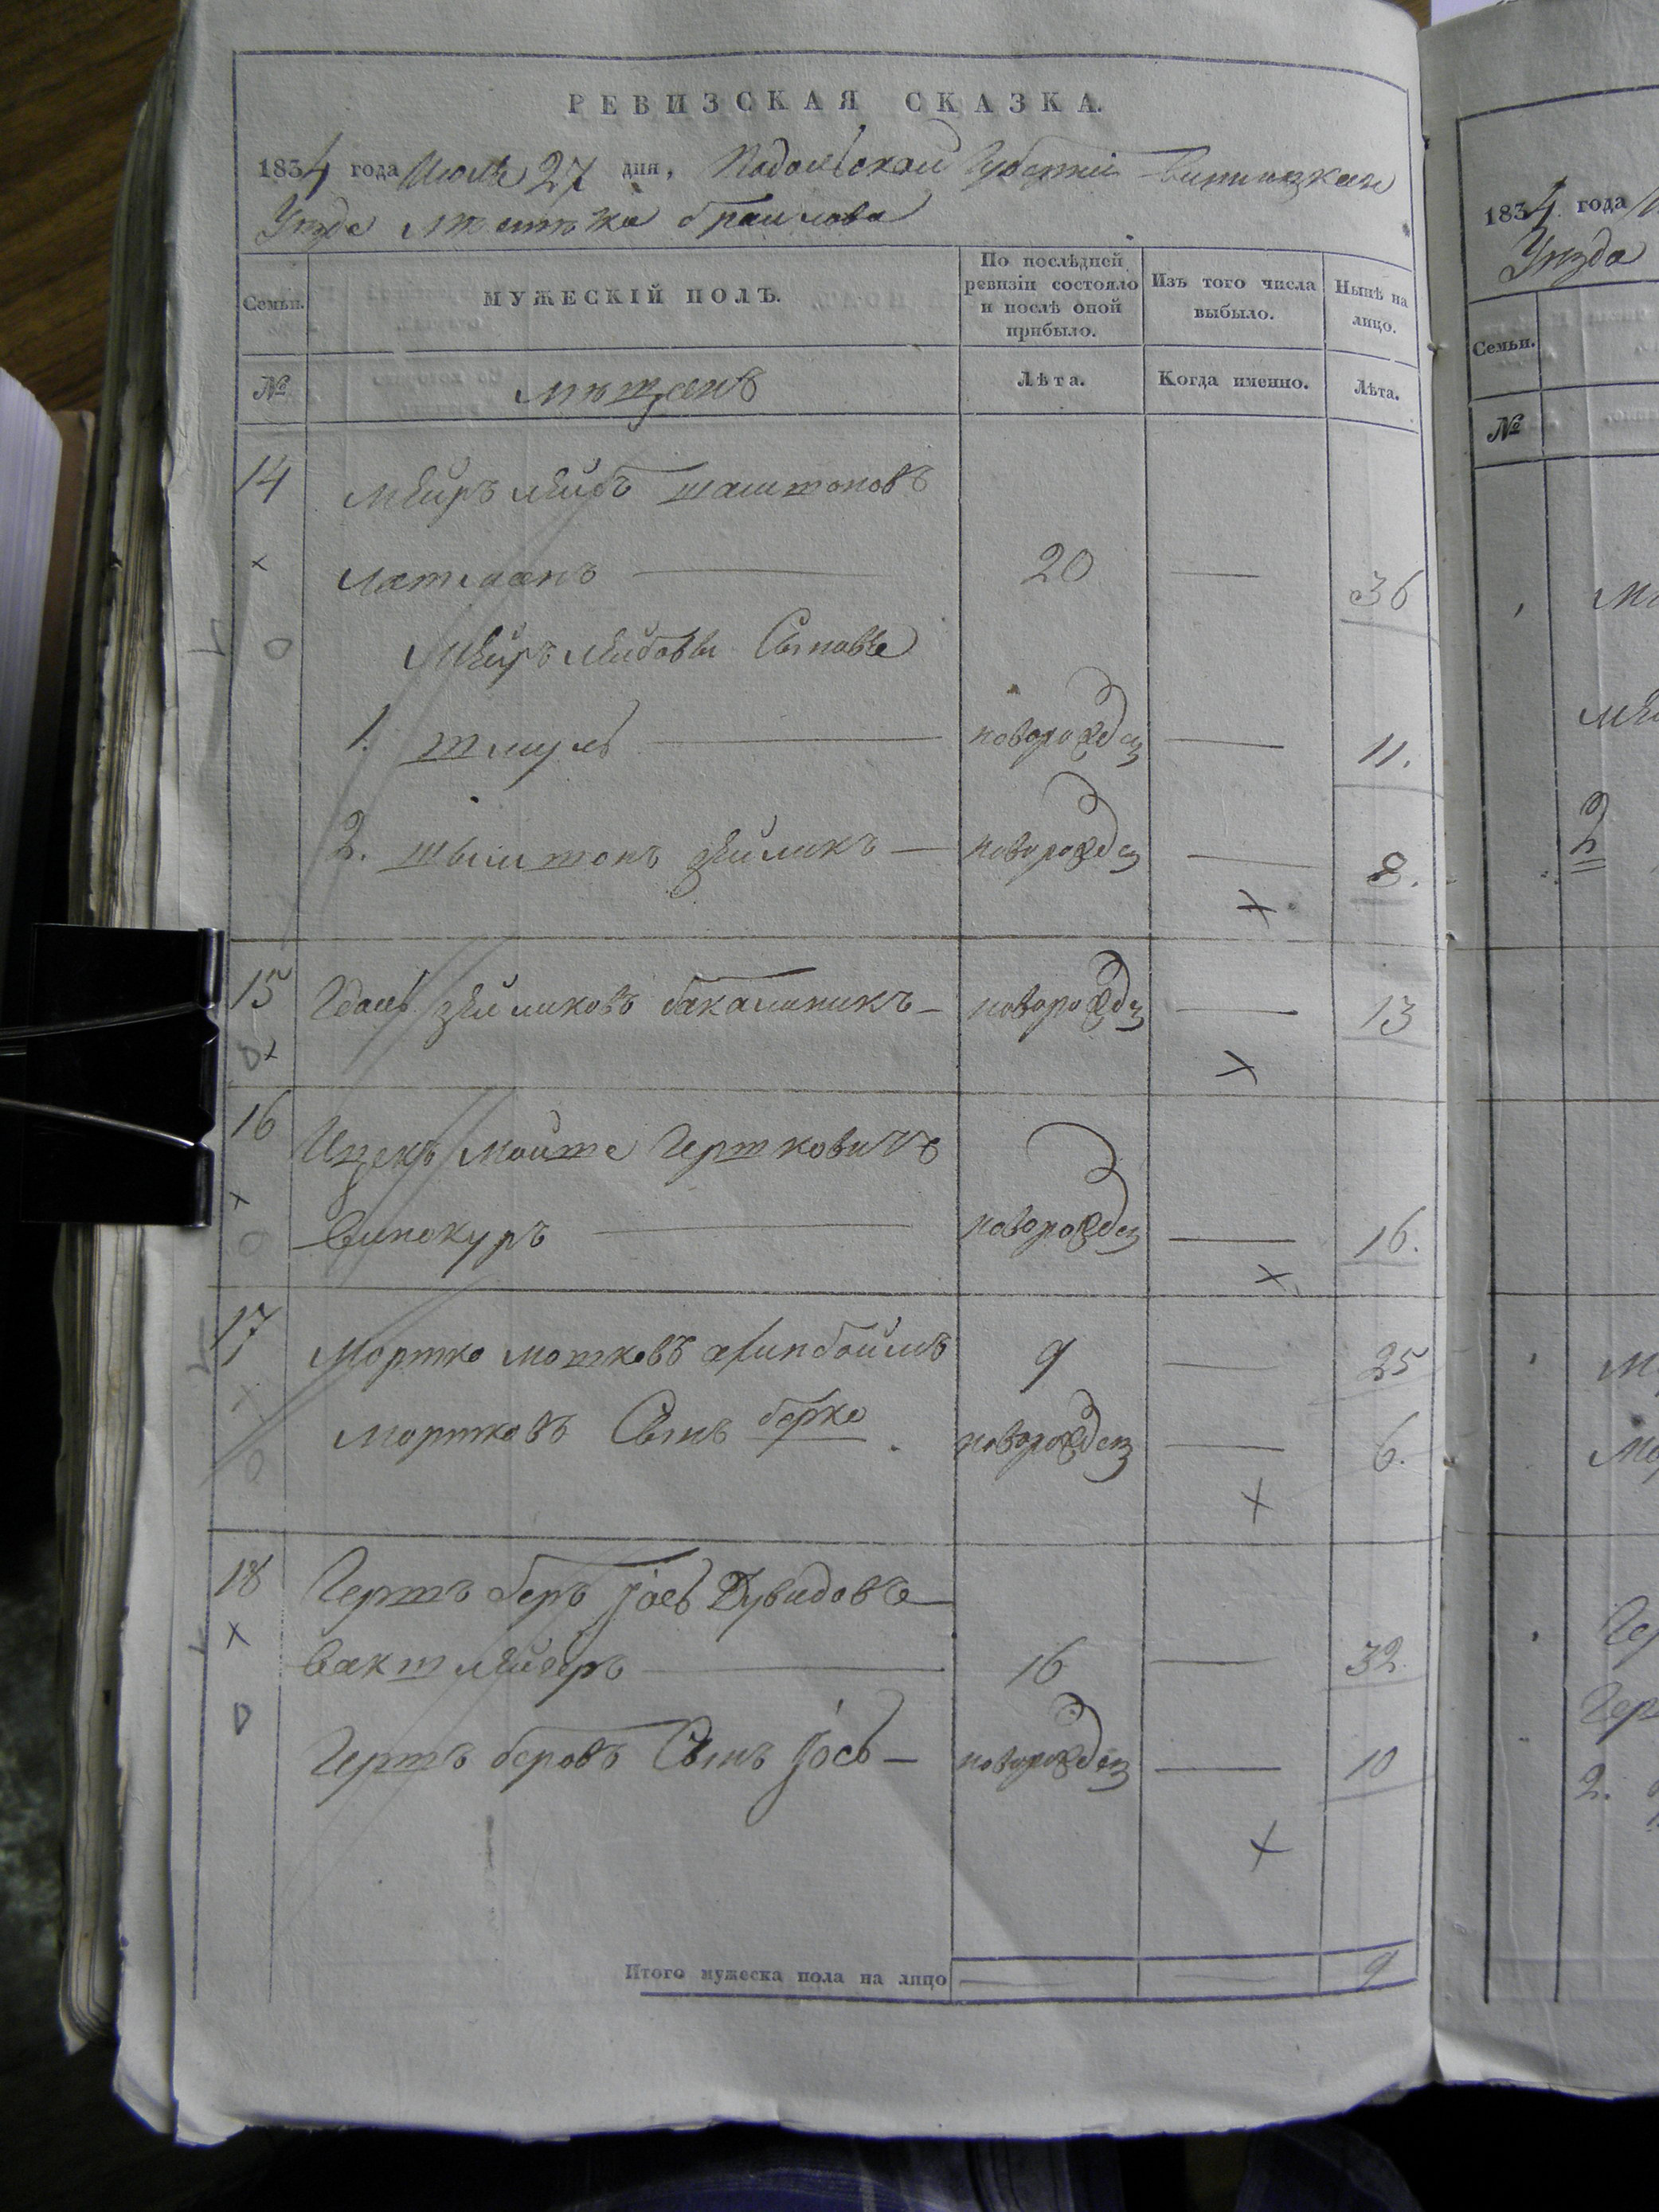 РЕВИЗСКАЯ СКАЗКА.
1834 года Июля 27 дня, Подольской Губернии Винницкаго
Уезда Местечка браилова
Семьи. МУЖЕСКІЙ ПОЛЪ. По послѣдней ревизіи состояло и послѣ оной прибыло. Изъ того числа выбыло. Нынѣ на лицо.
№ мѣщанъ Лѣта. Когда именно. Лѣта.
14 Мейръ лейбъ
20 — 36
Мейръ лейбовы Сыновье
1. шмуль новорожден — 11.
2. зейликъ — новорожден — 8.
15 Гдаль зейликовъ бакалиникъ — новорожден — 13
16 Ицекъ Мойше Гершковичъ
Винокуръ новорожден — 16.
17 Мортко мошковъ 9 — 25
Мортковъ Сынъ берко новорожден — 6.
18 Гершъ беръ Іось Дувидовъ
16 — 32.
Гершъ беровъ Сынъ Іось — новорожден — 10
Итого мужеска пола на лицо — — 9
1834 года
Уезда
Семьи.
№
2
2.